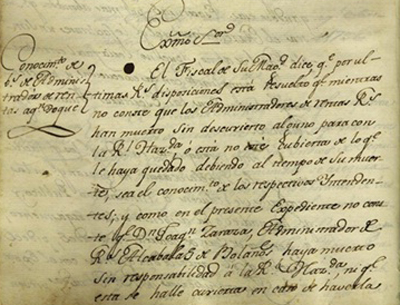 Exmo Sor
Conocimto de
bs de Adminis
tradores de ren
tas aqn. toque
El Fiscal de Su Magd. dice, qe. por ul
timas Rs. disposiciones está resuelto qe. mientras
no conste que los Administradores de rentas Rs.
han muerto sin descuvierto alguno para con
la Rl. Hazda. ó esta no esté cubierta de lo qe.
le haya quedado debiendo al tiempo de su muer
te, sea el conocimto. de los respectivos Intenden
tes; y como en el presente Expediente no cons
te qe. Dn. Joaqn. Zararza, Administrador de
Rs. Alcabalas de Bolaños haya muerto
sin responsabilidad á la Rl. Hazda., ni qe.
esta se halle cuvierta en caso de haverla